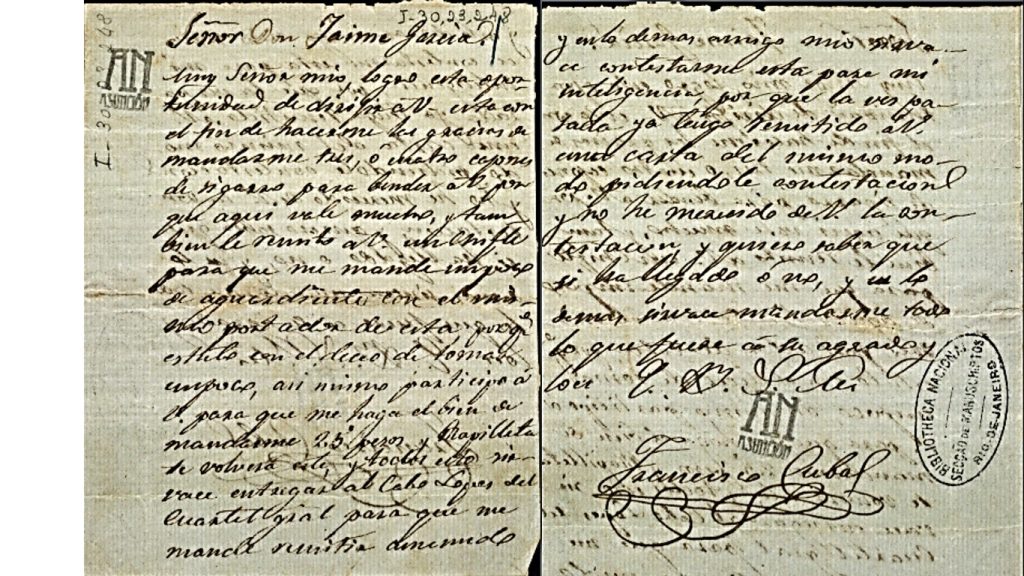 I-30,23,248
Señor Don Jaime Garcia.
I-30 48
AN
ASUNCIÓN
Muy Señor mio, logro esta opor
tunidad de dirijir a V. esta con
el fin de hacerme las gracias de
mandarme tres, ó cuatro
de sigarro para bender a V. por
que aqui vale mucho, y tam
bien le remito a V. un chifle
para que me mande un poco
de aguardiente con el mis-
mo portador de esta porqe
estube con el deceo de tomar
un poco, asi mismo participo á
V. para que me haga el bien de
mandarme 25 pesos, y
se volverá y todos esto sir
vace entregar al Cabo Lopes del
Cuartel gral para que me
mande remitir
y en lo demas amigo mio sirva-
ce contestarme esta para mi
inteligencia por que la ves pa-
sada ya tengo remitido a V.
una carta del mismo mo-
do pidiendole contestacion
y no he merecido de V. la con-
testacion, y quiero saber que
si ha llegado ó no, y en lo
demas sirvace mandarme todo
lo que fuere á su agrado y
AN
ASUNCIÓN
BIBLIOTHECA NACIONAL
SECÇÃO DE MANUSCRIPTOS
RIO DE JANEIRO
Francisco Cubas